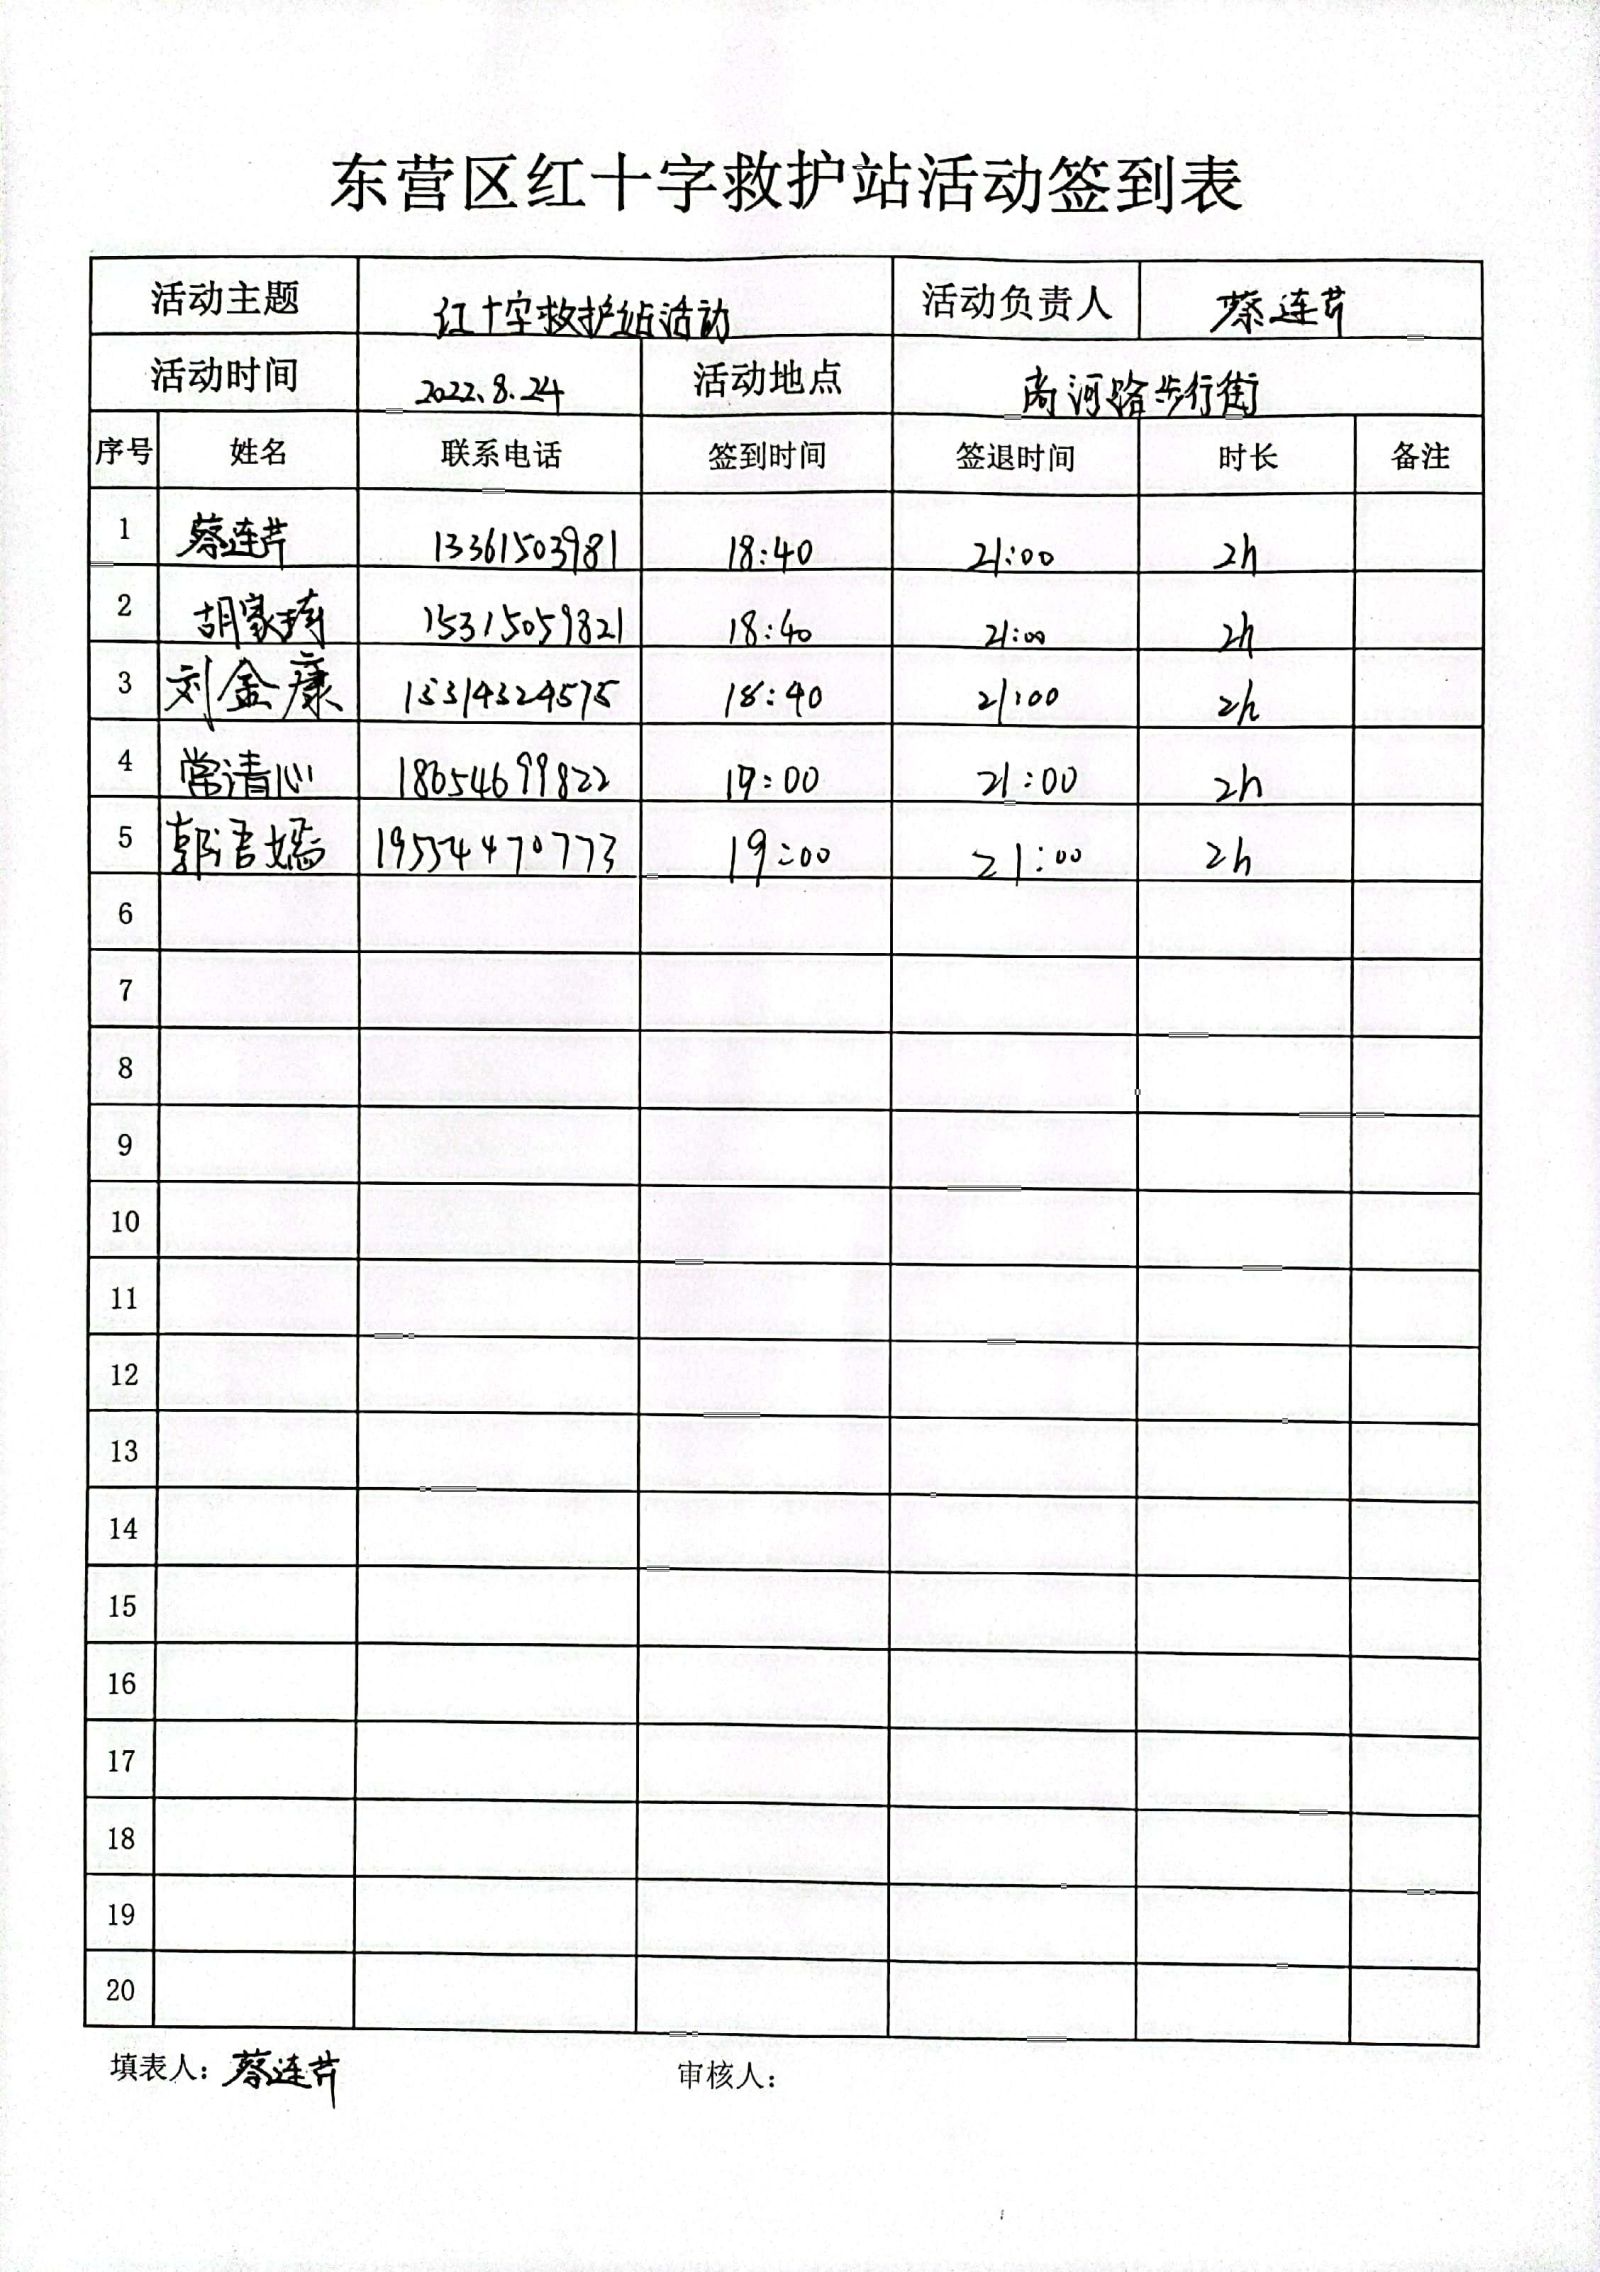 东营区红十字救护站活动签到表
活动主题 红十字救护站活动 活动负责人 蔡连芹
活动时间 2022.8.24 活动地点 尚河路步行街
序号 姓名 联系电话 签到时间 签退时间 时长 备注
1 蔡连芹 13361503981 18:40 21:00 2h
2 胡家琦 15315059821 18:40 21:00 2h
3 刘金康 18:40 21:00 2h
4 常清心 18654699822 19:00 21:00 2h
5 郭语嫣 19554470773 19:00 21:00 2h
6
7
8
9
10
11
12
13
14
15
16
17
18
19
20
填表人：蔡连芹 审核人：